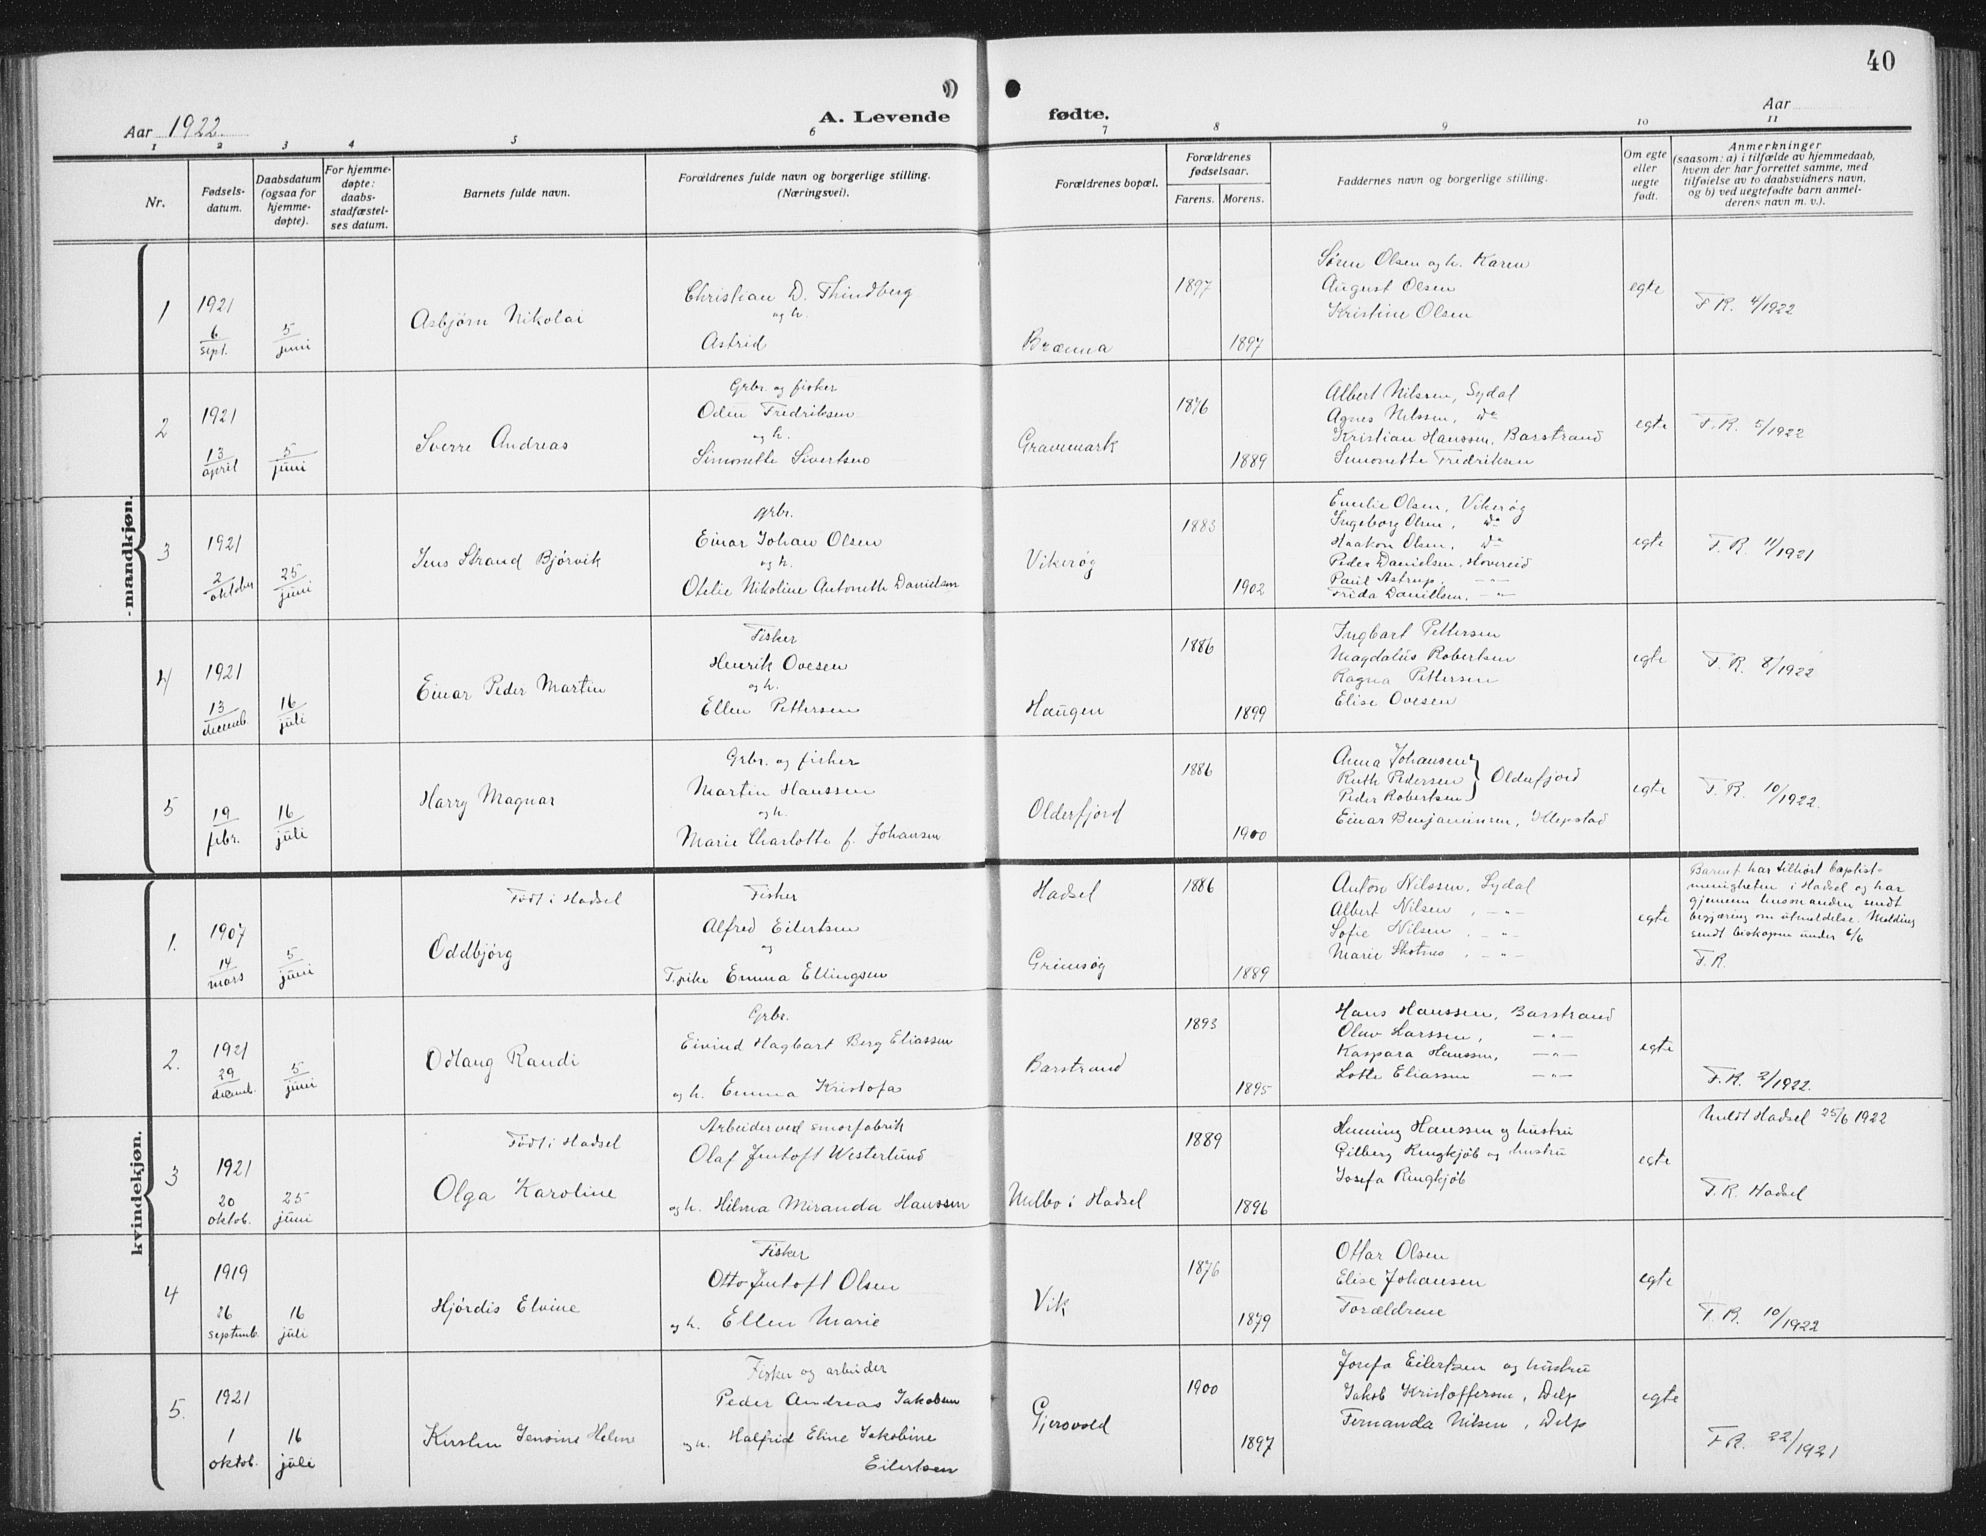 40
A. Levende fødte.
Aar 1922.
Aar
1 2 3 4 5 6 7 8 9 10 11
Nr.
Fødsels-
datum.
Daabsdatum
(ogsaa for
hjemme-
døpte).
For hjemme-
døpte:
daabs-
stadfæstel-
ses datum.
Barnets fulde navn.
Forældrenes fulde navn og borgerlige stilling.
(Næringsvei).
Forældrenes bopæl.
Forældrenes
fødselsaar.
Farens. Morens.
Faddernes navn og borgerlige stilling.
Om egte
eller
uegte
født.
Anmerkninger
(saasom: a) i tilfælde av hjemmedaab,
hvem der har forrettet samme, med
tilføielse av to daabsvidners navn,
og b) ved uegtefødte barn anmel-
derens navn m. v.).
mandkjøn.
1
1921
6
sept.
5
juni
Asbjørn Nikolai
Christian D. Thindberg
og h.
Astrid
Brænna
1897
1897
Søren Olsen og h. Karen
August Olsen
Kristine Olsen
egte
F.R. 4/1922
2
1921
13
april
5
juni
Sverre Andreas
Grbr. og fisker
Odin Fredriksen
og h.
Simonette Sivertsen
Gravermark
1876
1889
Albert Nilssen, Sydal
Agnes Nilssen, do
Kristian Hanssen, Barstrand
Simonette Fredriksen
egte
F.R. 5/1922
3
1921
2
oktober
25
juni
Jens Strand Bjørvik
grbr.
Einar Johan Olsen
og h.
Otelie Nikoline Antonette Danielsen
Vikerøg
1883
1902
Emelie Olsen, Vikerøg
Ingeborg Olsen, do
Haakon Olsen, do
Peder Danielsen, Hovereid
Paul Astrup, — " —
Frida Danielsen, — " —
egte
F.R. 11/1921
4
1921
13
decemb.
16
juli
Einar Peder Martin
Fisker
Henrik Ovesen
og h.
Ellen Pettersen
Haugen
1886
1899
Ingbart Pettersen
Magdalus Robertsen
Ragna Pettersen
Elise Ovesen
egte
F.R. 8/1922
5
19
febr.
16
juli
Harry Magnar
Grbr. og fisker
Martin Hanssen
og h.
Marie Charlotte f. Johansen
Olderfjord
1886
1900
Anna Johansen
Ruth Pedersen } Olderfjord
Peder Robertsen
Einar Benjaminsen, Klepstad
egte
F.R. 10/1922.
kvindekjøn.
1.
1907
14
mars
5
juni
Født i Hadsel
Oddbjørg
Fisker
Alfred Eilertsen
og
Pike Emma Ellingsen
Hadsel
Grimsøg
1886
1889
Anton Nilssen, Sydal
Albert Nilsen, — " —
Sofie Nilsen, — " —
Marie Skotnes, — " —
egte
Barnet har tilhørt baptist-
menigheten i Hadsel og har
gjennem husmanden sendt
begjæring om utmeldelse. Melding
sendt biskopen under 6/6
F.R.
2.
1921
29
decemb.
5
juni
Odlaug Randi
Grbr.
Eivind Hagbart Berg Eliassen
og h. Emma Kristofa
Barstrand
1893
1895
Hans Hanssen, Barstrand
Olav Larssen, — " —
Kaspara Hanssen, — " —
Lotte Eliassen — " —
egte
F.R. 2/1922.
3
1921
20
oktob.
25
juni
Født i Hadsel
Olga Karoline
Arbeider ved smorfabrik
Olaf Jentoft Westerlund
og h. Hilma Miranda Hanssen
Melbo i Hadsel
1889
1896
Henning Hanssen og hustru
Gilberg Ringkjøb og hustru
Josefa Ringkjøb
egte
Meldt Hadsel 25/6 1922
F.R. Hadsel
4
1919
26
septemb.
16
juli
Hjørdis Elvine
Fisker
Otto Jentoft Olsen
og h. Ellen Marie
Vik
1876
1879
Ottar Olsen
Elise Johansen
Forældrene
egte
F.R. 10/1922
5.
1921
1
oktob.
16
juli
Kirsten Jensine Helene
Fisker og arbeider
Peder Andreas Jakobsen
og h. Halfrid Eline Jakobine
Eilertsen
Gjersvold
1900
1897
Josefa Eilertsen og hustru
Jakob Kristoffersen, Delp
Fernanda Nilsen, Delp
egte
F.R. 22/1921